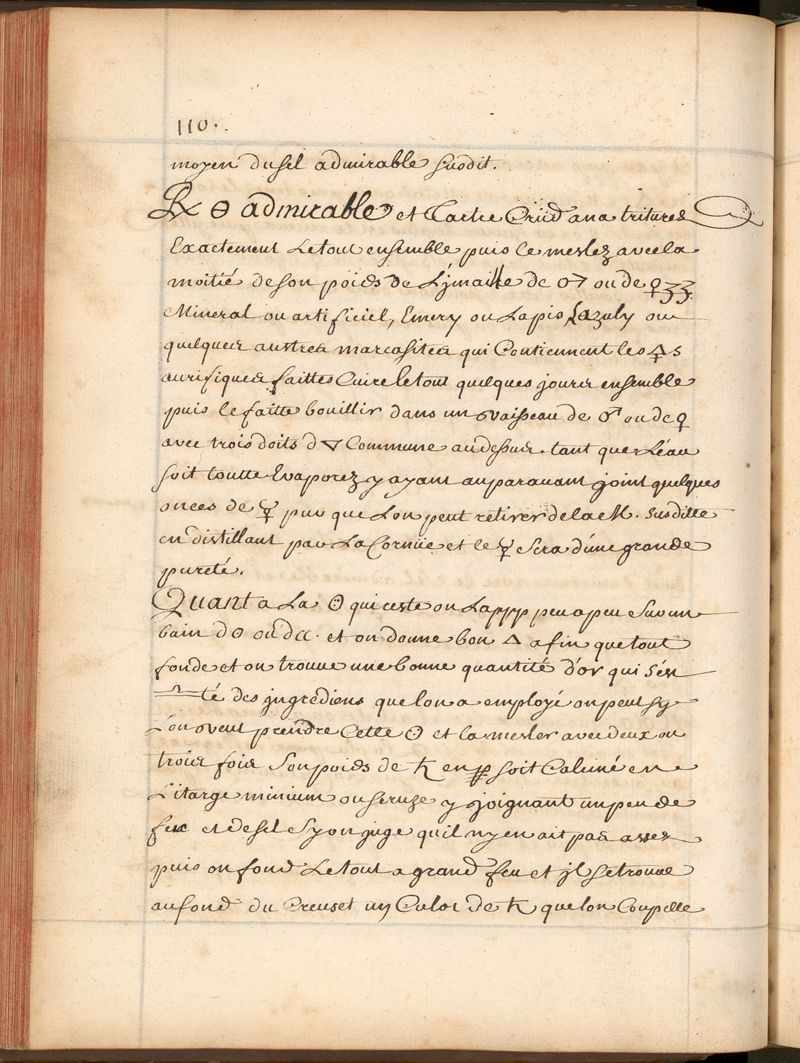 110.
moyen du sel admirable susdit.
℞ ⊖ admirable et Tartre Crud ana triturez
Exactement Le tout ensemble puis le meslez avec la
moitié de son poids de Lymaille de ♂ ou de ♀
Mineral ou artificiel, Emery ou Lapis Lazuly ou
quelques austres marcasites qui Contiennent les 🜍s
aurifiques faittes Cuire le tout quelques jours ensemble
puis le faitte bouillir dans un vaisseau de ♂ ou de ♀
avec trois doits d 🜄 Commune au dessus. tant que Léau
soit toutte Evaporez y ayant auparavant joint quelques
onces de ☿ pur que Lon peut retirer de la M. Susditte
en distillant par La Cornüe et le ☿ sera d'une grande
pureté.
Quant a La ⊖ qui reste on La ppp peu a peu sur un
bain d⊖ ou d☾. et on donne bon 🜂 afin que tout
fonde et on trouue une bonne quantité d'or qui s'én
té des jngrediens que lon a employé on peut sy
Lon veut prendre Cette ⊖ et la mesler avec deux ou
trois fois Son poids de ♄ en soit Calciné en
Litarge minium ou Seruze y joignant un peu de
fer et de sel Sy on juge qu'il n'y en ait pas assez
puis on fond Le tout a grand feu et jl se trouue
au fond du Creuset un Culot de ♄ que lon Coupelle